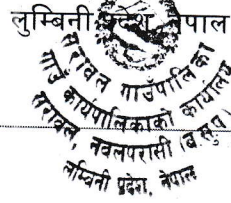 लुम्बिनी प्रदेश, नेपाल
सरावल गाउँपालिका
गाउँ कार्यपालिकाको कार्यालय
सरावल, नवलपरासी (ब.सु.प)
लुम्बिनी प्रदेश, नेपाल